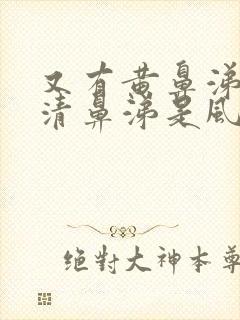 又有黄鼻涕
清鼻涕是風
絕對大神本尊